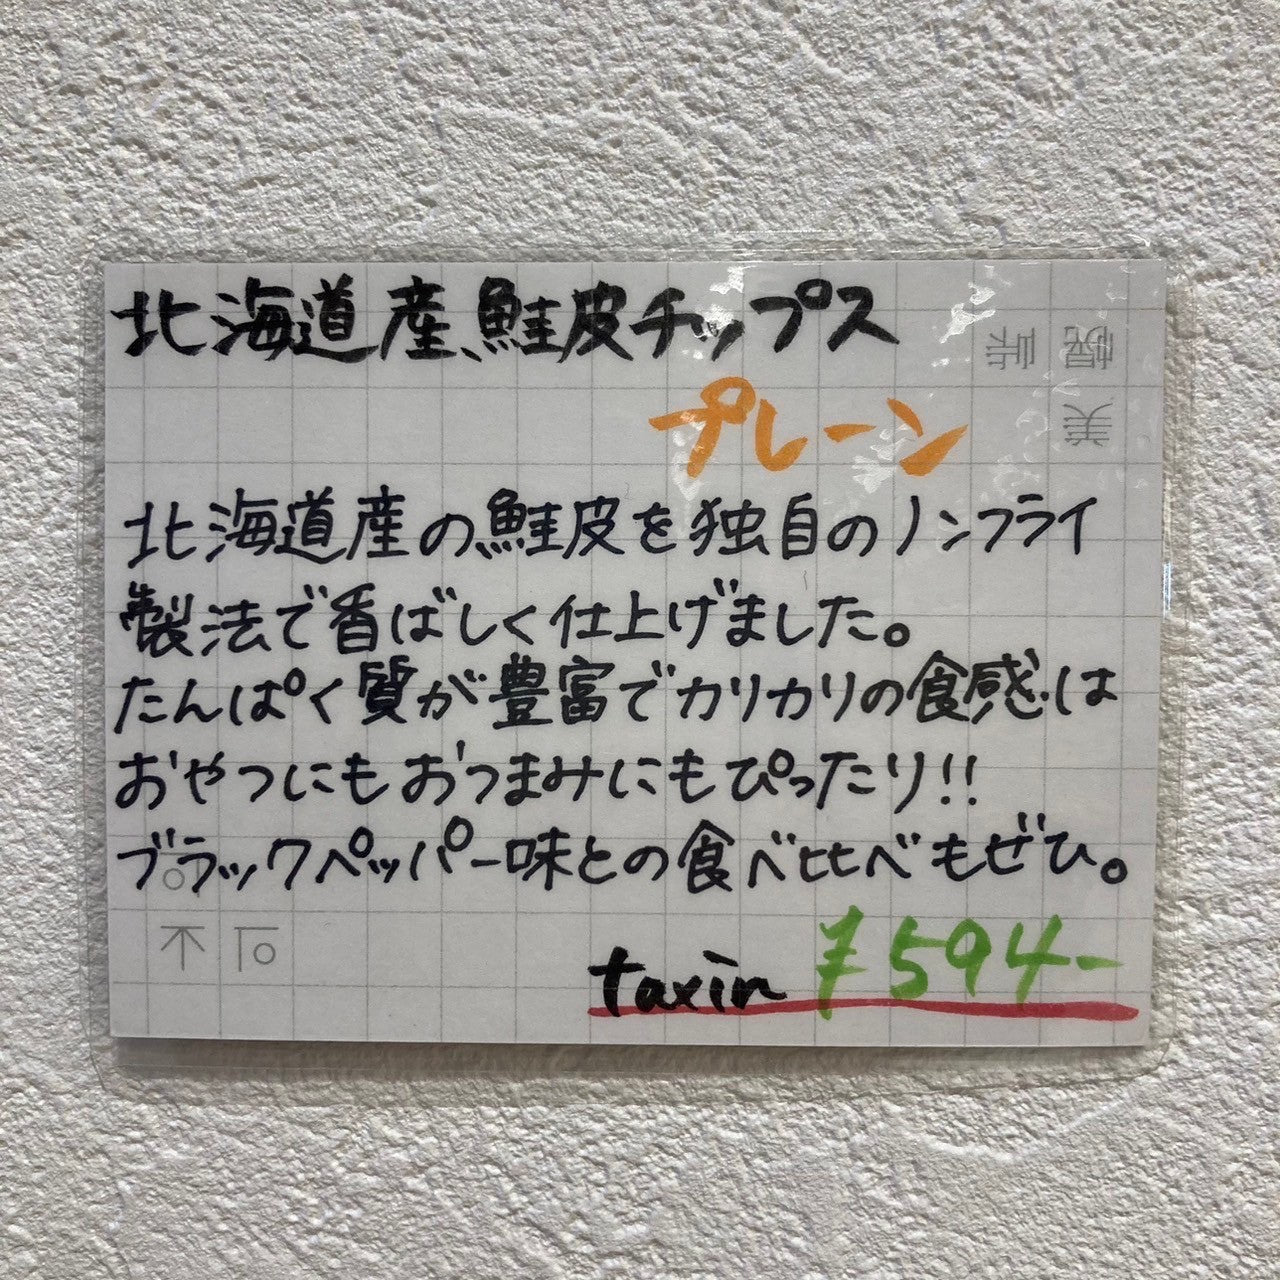 北海道産鮭皮チップス
プレーン
北海道産の鮭皮を独自のノンフライ
製法で香ばしく仕上げました。
たんぱく質が豊富でカリカリの食感は
おやつにもおつまみにもぴったり!!
ブラックペッパー味との食べ比べもぜひ。
taxin ¥594-
美幌峠